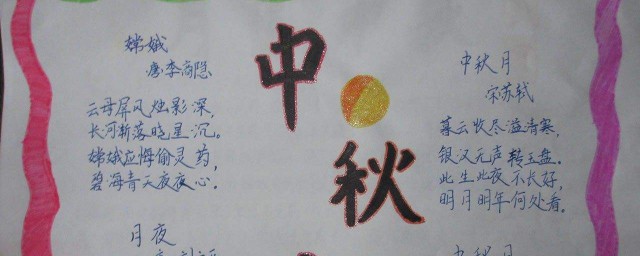 嫦娥
唐·李商隐
云母屏风烛影深,
长河渐落晓星沉。
嫦娥应悔偷灵药,
碧海青天夜夜心。
月夜
中
秋
中秋月
宋苏轼
暮云收尽溢清寒,
银汉无声转玉盘。
此生此夜不长好,
明月明年何处看。
中秋月